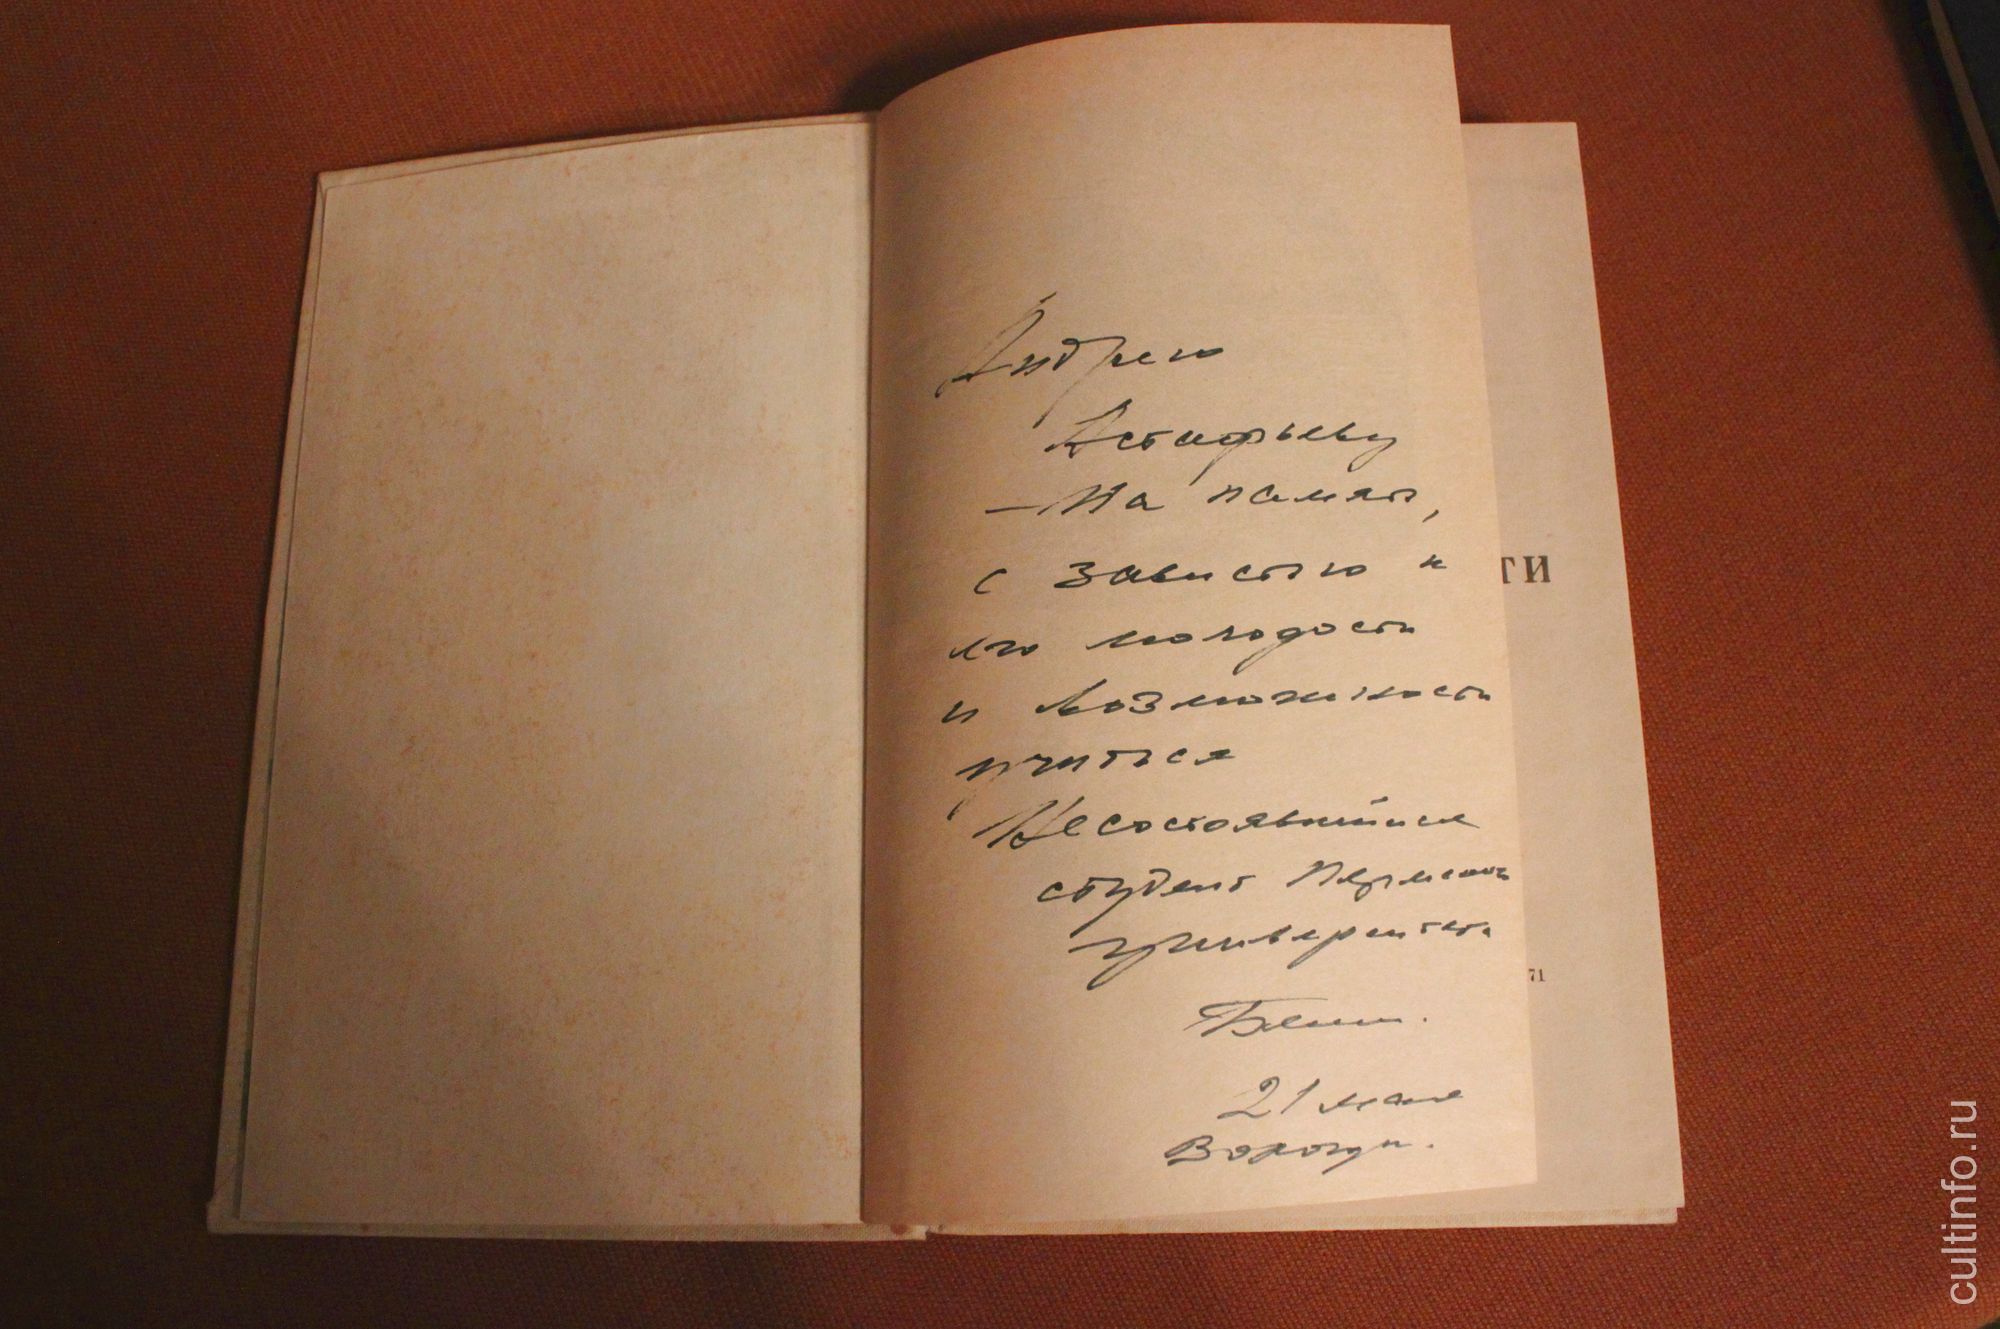 Андрею
Астафьеву
— На память,
с завистью к
его молодости
и возможности
учиться
Несостоявшийся
студент Пермского
университета
Белов.
21 мая
Вологда.
ТИ
71
cultinfo.ru